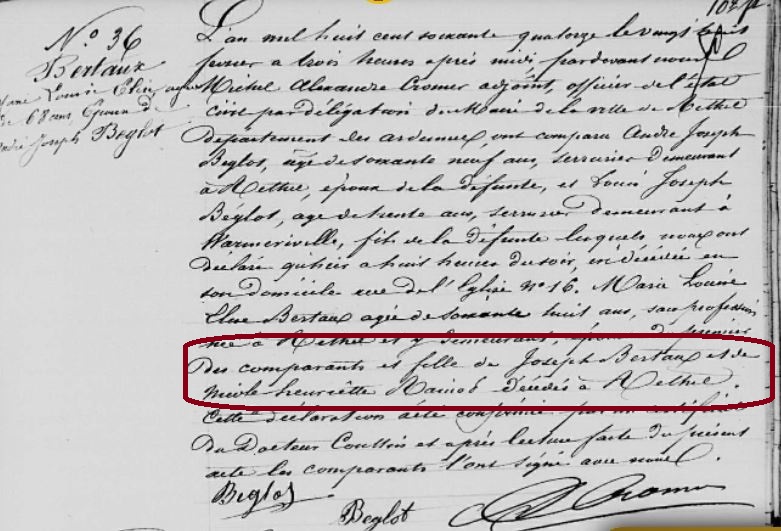 N.o 36
Bertaux
Marie Louise Elise agée
de 68 ans, Epouse d
André Joseph Beglot
L'an mil huit cent soixante quatorze le vingt
fevrier a trois heures après midi pardevant nous
Michel Alexandre Cromer adjoint, officier de l'état
civil par délégation du Maire de la ville de Rethel
département des ardennes, ont comparu André Joseph
Beglot, âgé de soixante neuf ans, serrurier demeurant
à Rethel, époux de la défunte, et Louis Joseph
Béglot, age de trente ans, serrurier demeurant à
Warmeriville, fils de la défunte lesquels nous ont
déclaré qu'hier a huit heures du soir, est décédée en
son domicile rue de l'Eglise n.o 16. Marie Louise
Elise Bertaux agée de soixante huit ans, sans profession
née à Rethel et y demeurant, épouse du premier
des comparants et fille de Joseph Bertaux et de
Nicole henriette décédés à Rethel.
Cette déclaration a été confirmée par un certificat
du Docteur et après lecture faite du présent
acte les comparants l'ont signé avec nous.
Beglot
Beglot
A Cromer